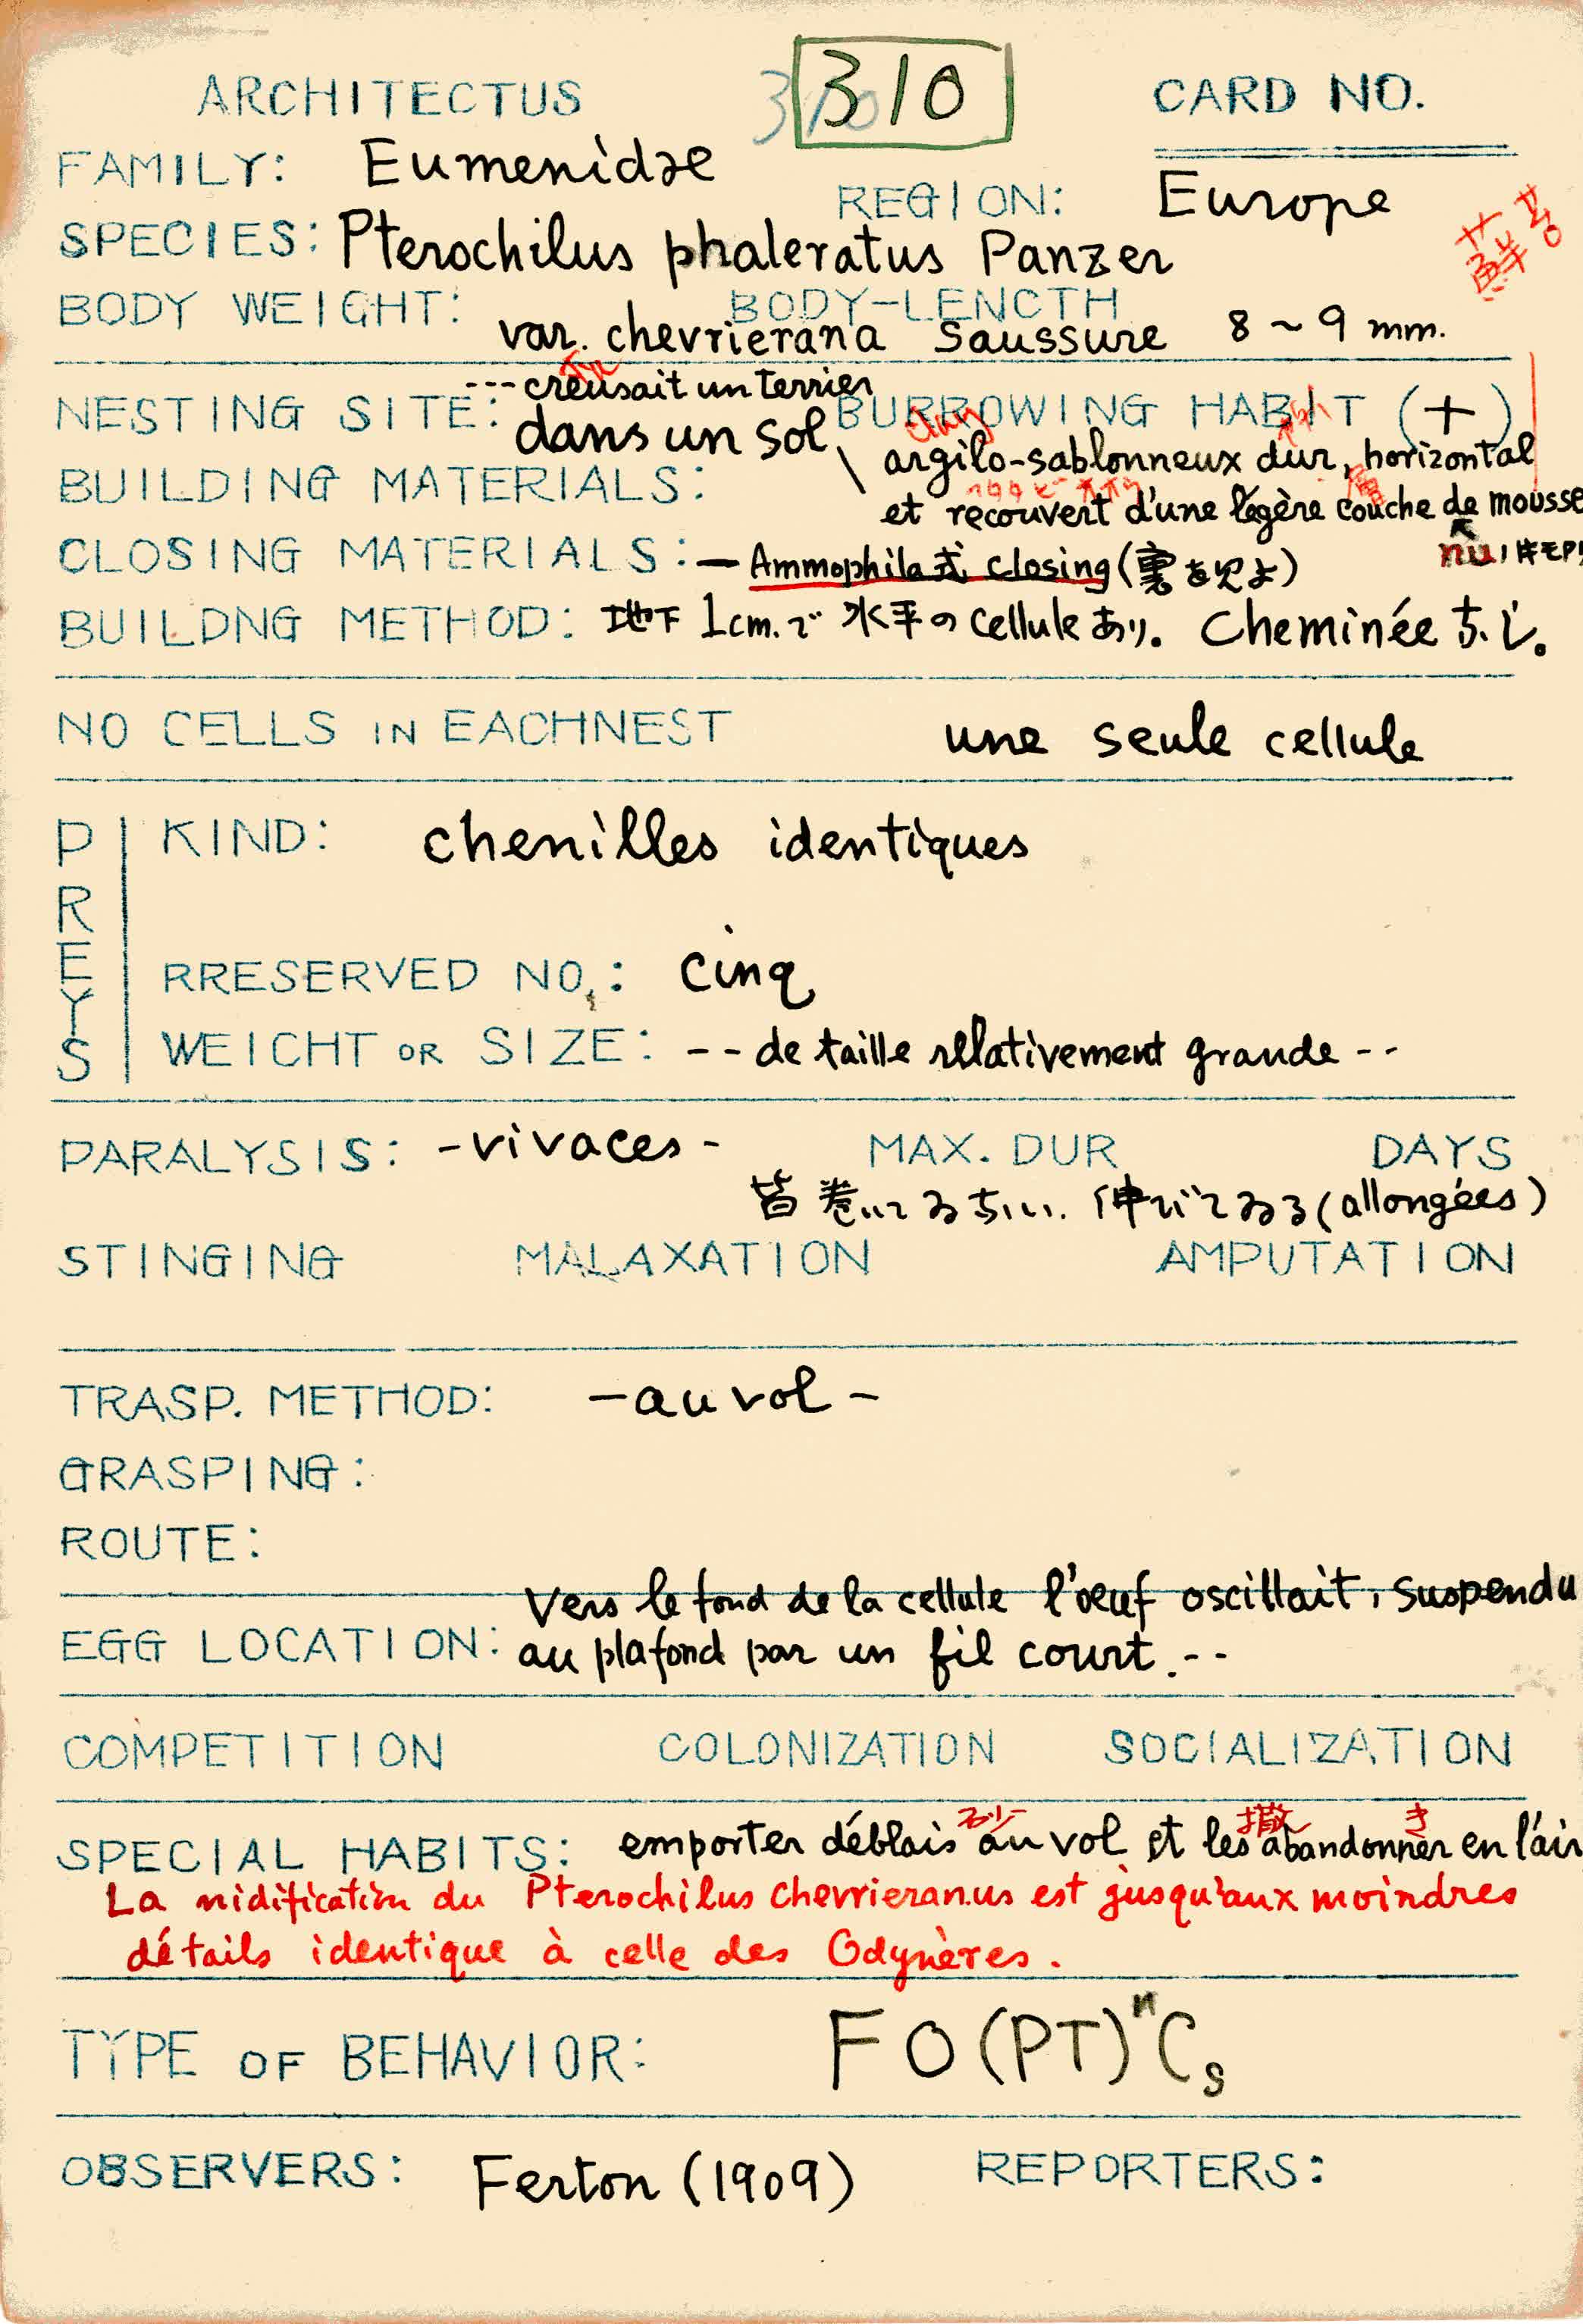 ARCHITECTUS 310 CARD NO.
FAMILY: Eumenidae
REGION: Europe
SPECIES: Pterochilus phaleratus Panzer
蘚苔
BODY WEIGHT: BODY-LENGTH
var. chevrierana Saussure 8~9 mm.
--- creusait un terrier
NESTING SITE: dans un sol BURROWING HABIT (+)
clay
argilo-sablonneux dur, horizontal
BUILDING MATERIALS:
層
et recouvert d'une légère couche de mousse
CLOSING MATERIALS: — Ammophila式 closing (裏を見よ)
nu
BUILDNG METHOD: 地下 1cm.で 水平の celluleあり. Cheminéeなし。
NO CELLS IN EACHNEST une seule cellule
PREYS
KIND: chenilles identiques
RRESERVED NO.: cinq
WEIGHT OR SIZE: -- de taille rellativement grande --
PARALYSIS: -vivaces- MAX. DUR DAYS
皆巻いてゐない. 伸びてゐる (allongées)
STINGING MALAXATION AMPUTATION
TRASP. METHOD: -au vol-
GRASPING:
ROUTE:
Vers le fond de la cellule l'œuf oscillait, suspendu
EGG LOCATION: au plafond par un fil court.--
COMPETITION COLONIZATION SOCIALIZATION
撒き
SPECIAL HABITS: emporter déblais au vol et les abandonner en l'air
La nidification du Pterochilus chevrieranus est jusqu'aux moindres
détails identique à celle des Odynères.
TYPE OF BEHAVIOR: FO(PT)ⁿCs
OBSERVERS: Ferton (1909) REPORTERS: